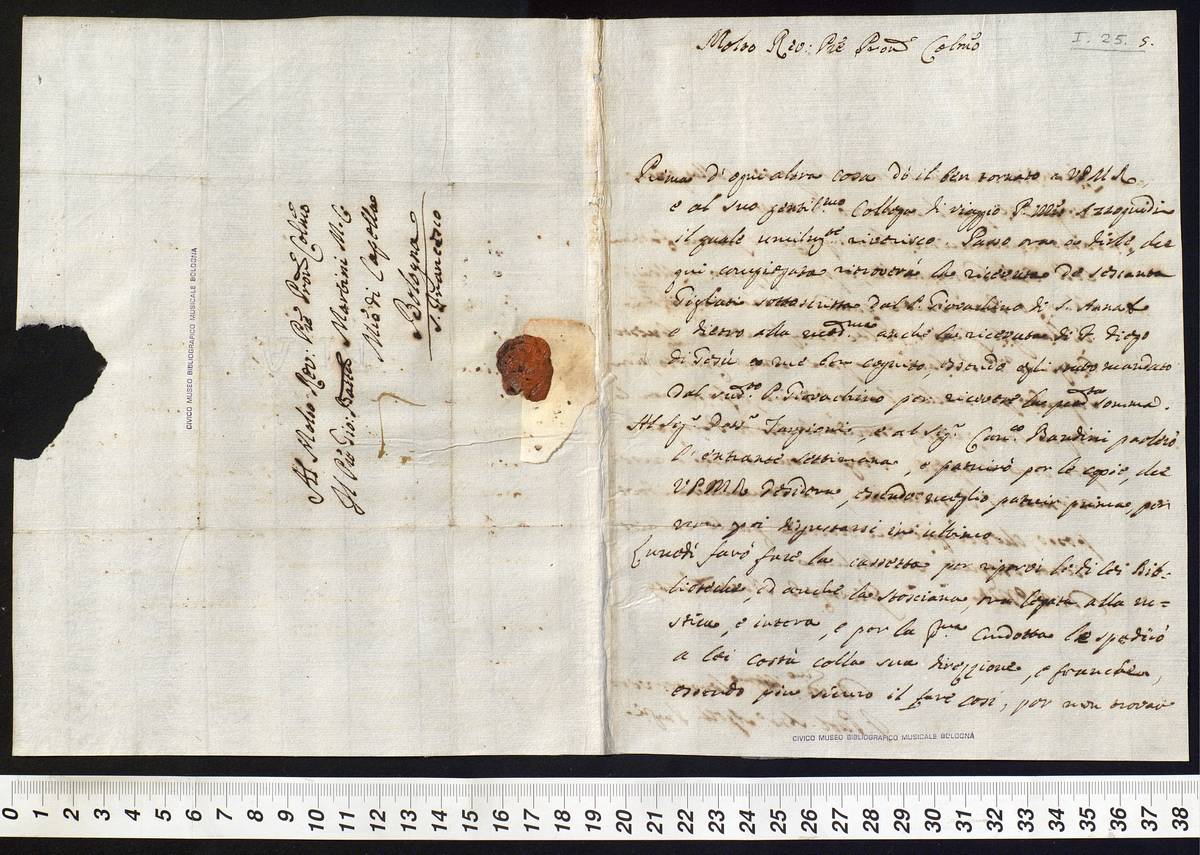 Al Molto Rev: Prē Pron͞e Colmo
Il Prē Gio: Batta Martini M: C:
Mrō di Capella
Bologna
S. Francesco
7
CIVICO MUSEO BIBLIOGRAFICO MUSICALE BOLOGNA
I. 25. 5.
Molto Rev: Prē Pron͞e Colmo
Prima d'ogni altra cosa dò il ben tornato a V P M R,
e al suo gentilmo Collega di viaggio P. Mrō
il quale umilmte riverisco. Passo ora a dirle, che
qui congiegata ritroverà la ricevuta de sessanta
Gigliati sottoscritta dal P. Giovachino di S. Anna
e dietro alla medma anche la ricevuta di F. Diego
di Gesù a me ben cognito, essendo egli stato mandato
dal sudo P. Giovachino per ricevere la somma.
Al Sigr Dottr Targioni, e al Sigr Canco Bandini parlerò
l'entrante settimana, e patuirò per le copie, che
V P M R desidera, essendo meglio patuir prima, per
non poi disgustarsi in ultimo
Lunedì farò fare la cassetta per riporvi le di lei Bib=
lioteche, ed anche la Stosciana, ora legata alla ru=
stica, e intera, e per la pma Condotta le spedirò
a lei costà colla sua direzzione, e franchea,
essendo più sicuro il fare così, per non trovar
CIVICO MUSEO BIBLIOGRAFICO MUSICALE BOLOGNA
0 1 2 3 4 5 6 7 8 9 10 11 12 13 14 15 16 17 18 19 20 21 22 23 24 25 26 27 28 29 30 31 32 33 34 35 36 37 38